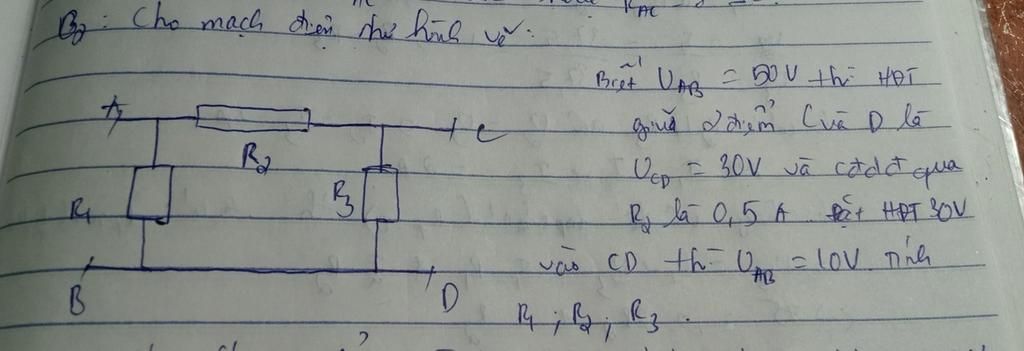 B2: Cho mạch điện như hình vẽ.
Biết U_AB = 50V thì HĐT
giữa 2 điểm C và D là
U_CD = 30V và cđdđ qua
R2 là 0,5 A. Đặt HĐT 30V
vào CD thì U_AB = 10V. Tính
R1; R2; R3.
A
R2
C
R1
R3
B
D